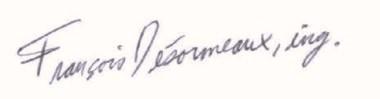 François Désormeaux, ing.